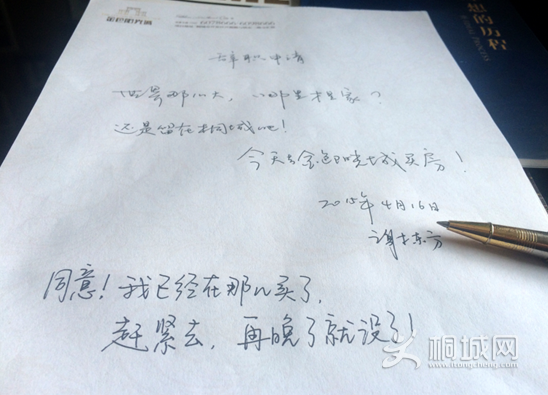 金色阳光城
想的历程
辞职申请
世界那么大，哪里才是家？
还是留在桐城吧！
今天去金色阳光城买房！
2015年4月16日
谢东方
同意！我已经在那儿买了，
赶紧去，再晚了就没了！
桐城网
www.itongcheng.com